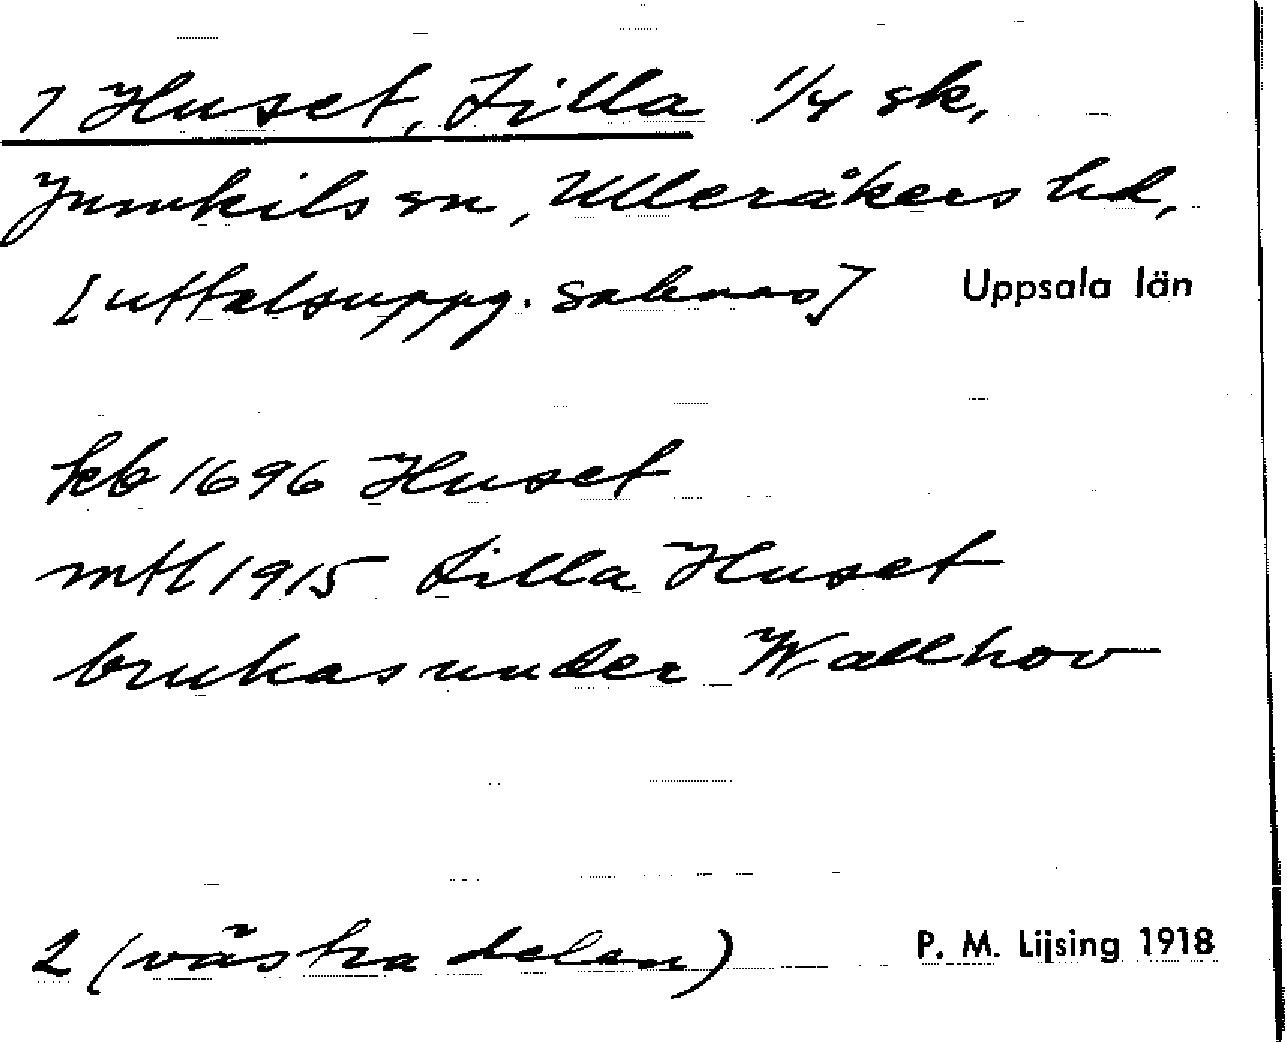 7 Huset, Lilla 1/4 sk,
Jumkils sn, Ulleråkers hd,
[uttalsuppg. saknas] Uppsala län
kb 1696 Huset
mtl 1915 Lilla Huset
brukas under Wallhov
2 (västra delen) P. M. Lijsing 1918